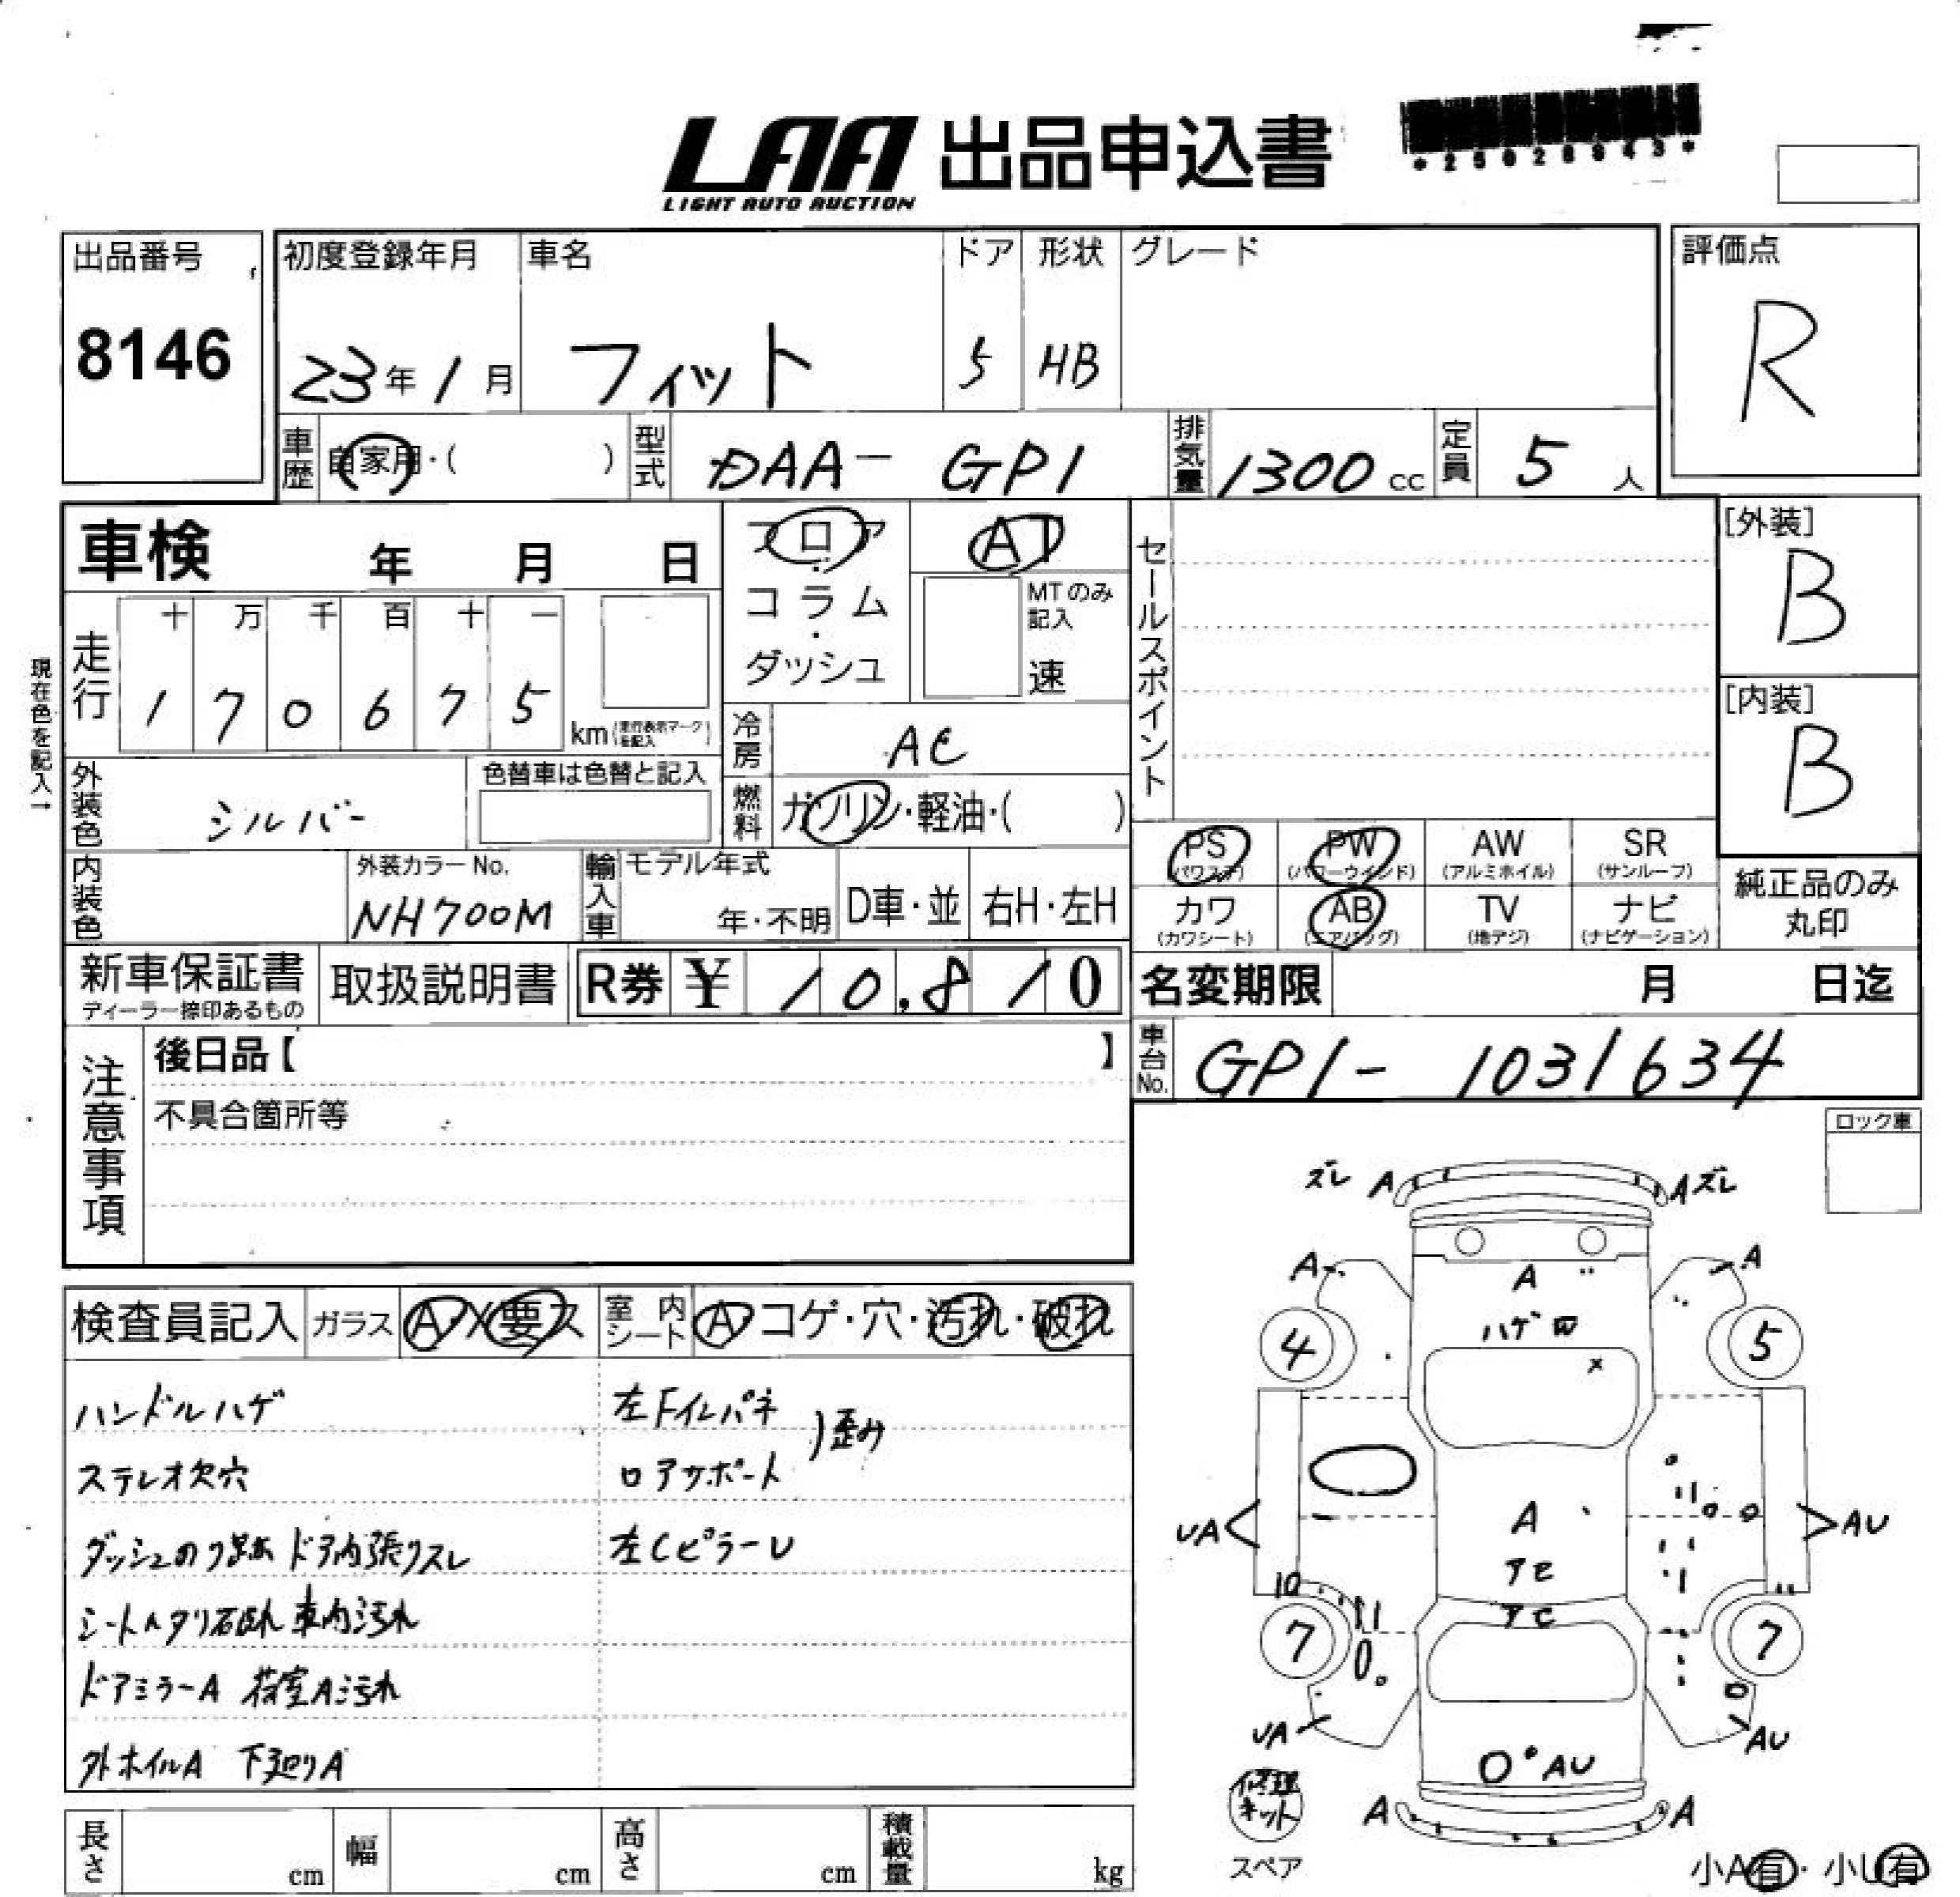 LAA 出品申込書
LIGHT AUTO AUCTION
*25028943*
出品番号
8146
初度登録年月
23年1月
車名
フィット
ドア
5
形状
HB
グレード
評価点
R
車歴 自家用・( )
型式 DAA-GP1
排気量 1300cc
定員 5人
車検 年 月 日
フロア・コラム・ダッシュ
AT
MTのみ記入
速
セールスポイント
[外装]
B
[内装]
B
現在色を記入→
走行
十 万 千 百 十 一
1 7 0 6 7 5 km(走行表示マークを記入)
冷房 AC
外装色 シルバー
色替車は色替と記入
燃料 ガソリン・軽油・( )
内装色
外装カラーNo.
NH700M
輸入車
モデル年式
年・不明
D車・並
右H・左H
PS (パワステ)
PW (パワーウインド)
AW (アルミホイル)
SR (サンルーフ)
カワ (カワシート)
AB (エアバッグ)
TV (地デジ)
ナビ (ナビゲーション)
純正品のみ丸印
新車保証書
ディーラー捺印あるもの
取扱説明書
R券 ¥ 10,810
名変期限 月 日迄
車台No. GP1-1031634
注意事項
後日品【 】
不具合箇所等
ロック車
検査員記入
ガラス A・X要ス
室内シート A コゲ・穴・汚れ・破れ
ハンドルハゲ
ステレオ欠穴
ダッシュのり跡 ドア内張りスレ
シートヘタリ破れ 車内汚れ
ドアミラーA 荷室A汚れ
外ホイルA 下廻りA
左Fインパネ
ロアサポート
)歪み
左CピラーU
ズレ A A ズレ
A A
A
ハゲ
4 5
X
UA A AU
アセ
アセ
10
7 7
UA AU
AU
修理キット
スペア
A A
小A有・小U有
長さ cm
幅 cm
高さ cm
積載量 kg